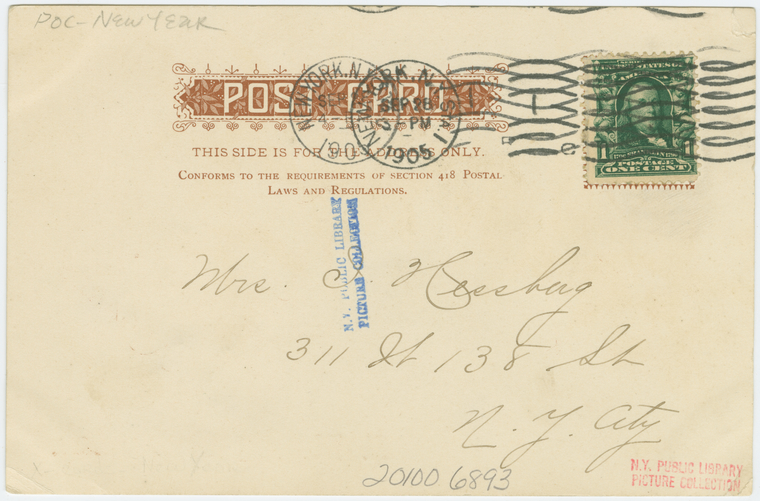 POC - NEW YEAR
POST CARD
NEW YORK, N.
SEP 28
3 - PM
1905
THIS SIDE IS FOR THE ADDRESS ONLY.
CONFORMS TO THE REQUIREMENTS OF SECTION 418 POSTAL
LAWS AND REGULATIONS.
UNITED STATES
AMERICA
POSTAGE
ONE CENT
N.Y. PUBLIC LIBRARY
PICTURE COLLECTION
Mrs. C Hessberg
311 W 138 St
N. Y. City
20100 6893
N.Y. PUBLIC LIBRARY
PICTURE COLLECTION